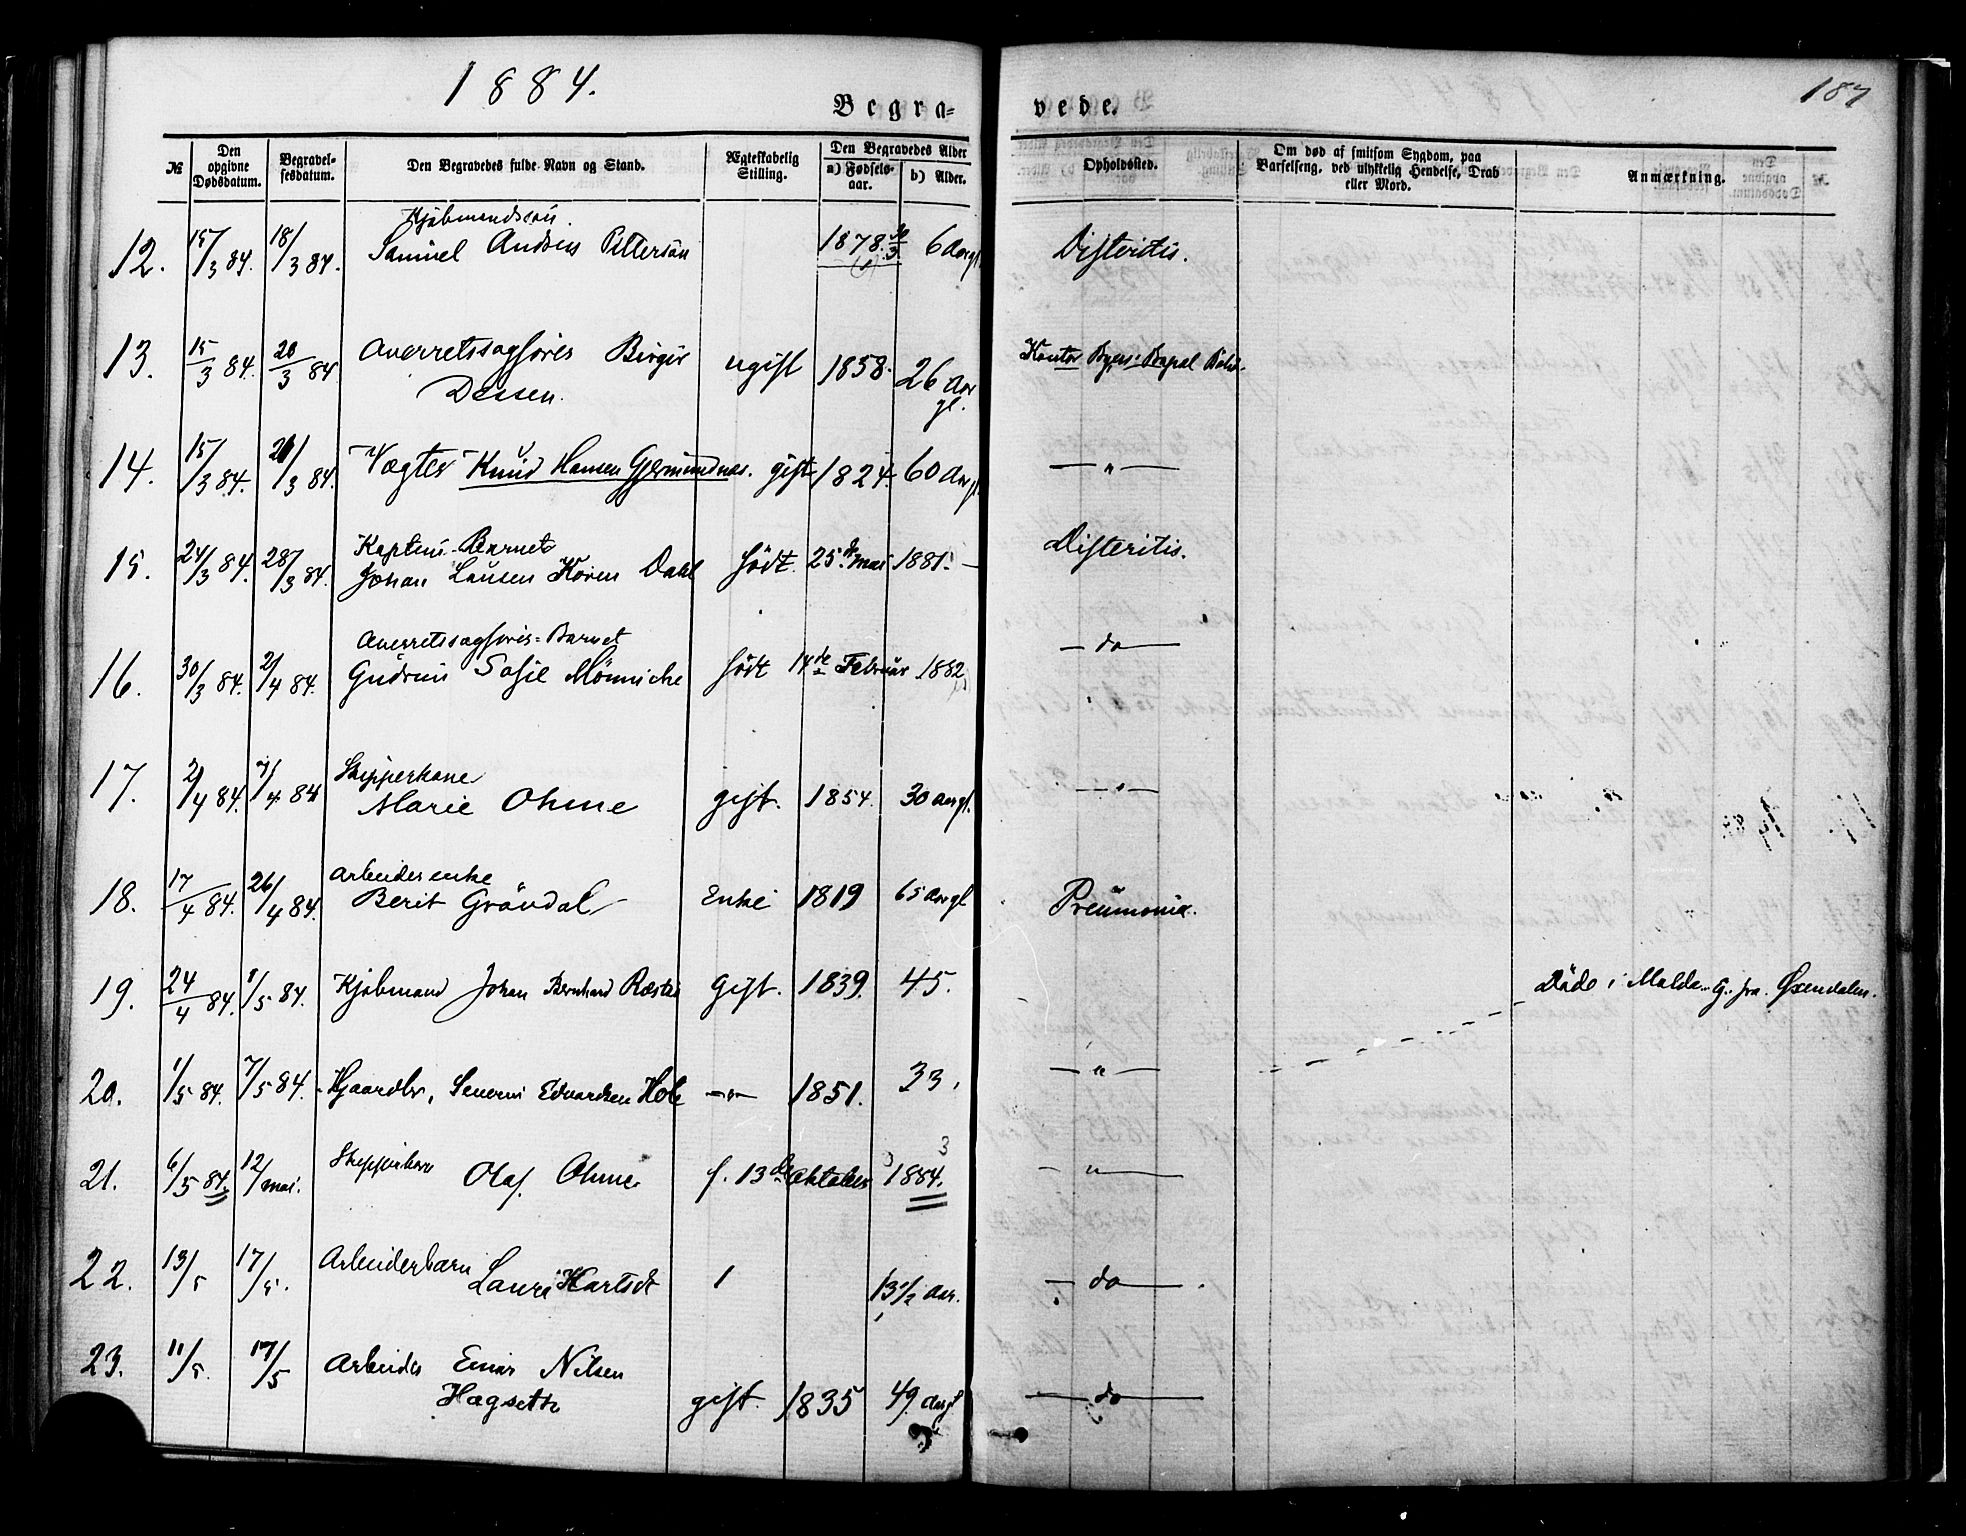 1884.
187
Begra=
vede.
№
Den opgivne Dødsdatum.
Begravelsesdatum.
Den Begravedes fulde Navn og Stand.
Ægteskabelig Stilling.
Den Begravedes Alder
a) Fødselsaar.
b) Alder.
Opholdssted.
Om død af smitsom Sygdom, paa Barselseng, ved ulykkelig Hendelse, Drab eller Mord.
Anmærkning.
Kjøbmandssøn
12. 15/3 84. 18/3 84. Samuel Andreas Pettersøn 1878. 30/3 6 Aar gl. Difteritis.
13. 15/3 84. 20/3 84 Overretssagfører Birger ugift 1858. 26 Aar gl.
Dessen.
14. 15/3 84. 21/3 84. Vægter Knud Hansen Gjermundnæs. gift 1824. 60 Aar gl. — " —
Kaptein-Barnet
15. 24/3 84. 28/3 84. Johan Koren Dahl født 25de mai 1881. Difteritis.
Overretssagførér=Barnet
16. 30/3 84. 2/4 84. Gudrun Sofie Mønniche født 14de Februar 1882 — do —
Skipperkone
17. 2/4 84. 7/4 84 Marie Ohme gift. 1854. 30 aar gl. — " —
Arbeiderenke
18. 17/4 84. 26/4 84. Berit Gröndal Enke 1819 65 Aar gl Pneumonia.
19. 24/4 84. 1/5 84. Kjøbmand Johan Bernhard Gift. 1839. 45. Døde i Molde. G. fra Øxendalen.
20. 1/5 84. 7/5 84. Gaardbr, Edvardsen Hole — " — 1851. 33. — " —
3
21. 6/5 84. 12/mai. Skipperbarn Olaf Ohme f. 13de Oktober 1884. — " —
22. 13/5 17/5. Arbeiderbarn 1 13 1/2 aar. — do —
23. 11/5. 17/5 Arbeider Einar Nilsen
Hagsette gift. 1835 49 aar gl — do —